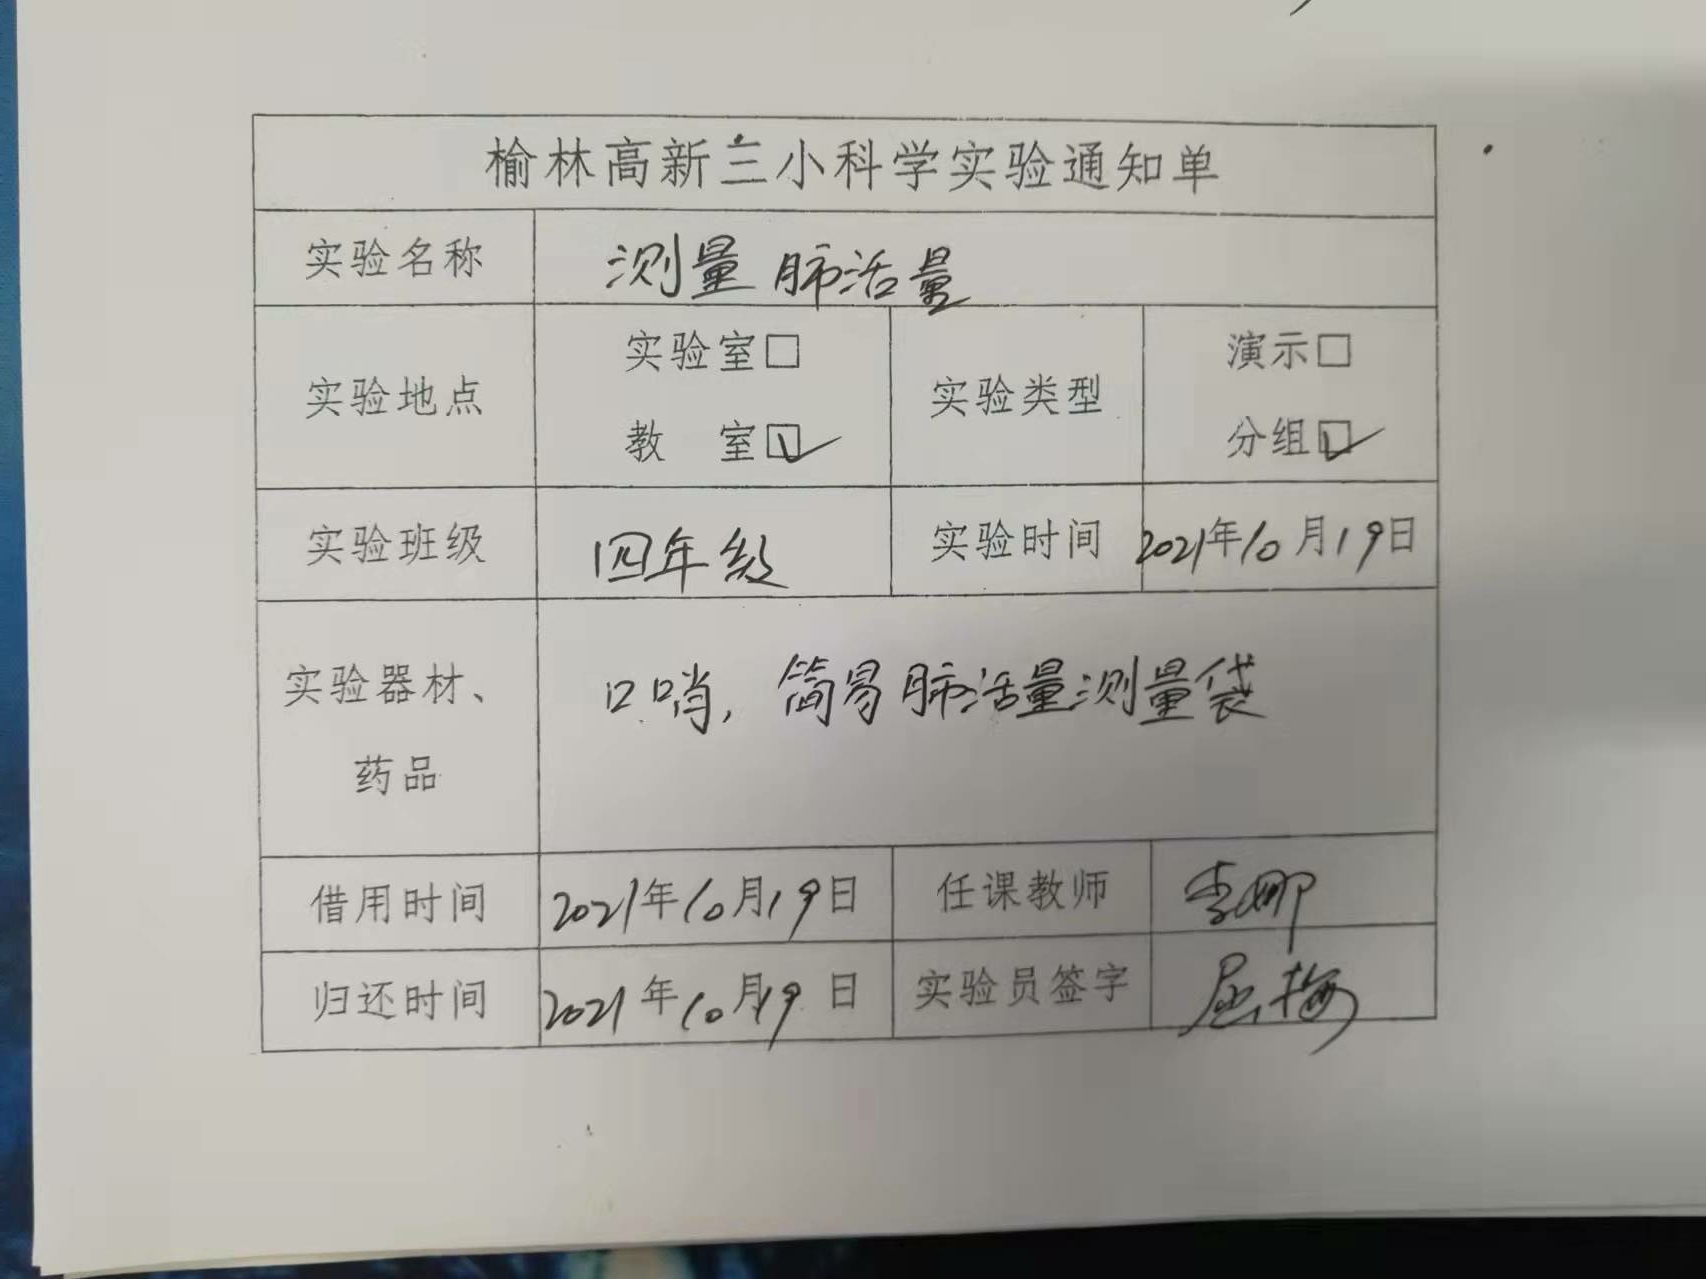 榆林高新三小科学实验通知单
实验名称 测量肺活量
实验地点 实验室□ 教 室☑ 实验类型 演示□ 分组☑
实验班级 四年级 实验时间 2021年10月19日
实验器材、药品 口哨，简易肺活量测量袋
借用时间 2021年10月19日 任课教师 李娜
归还时间 2021年10月19日 实验员签字 屈梅